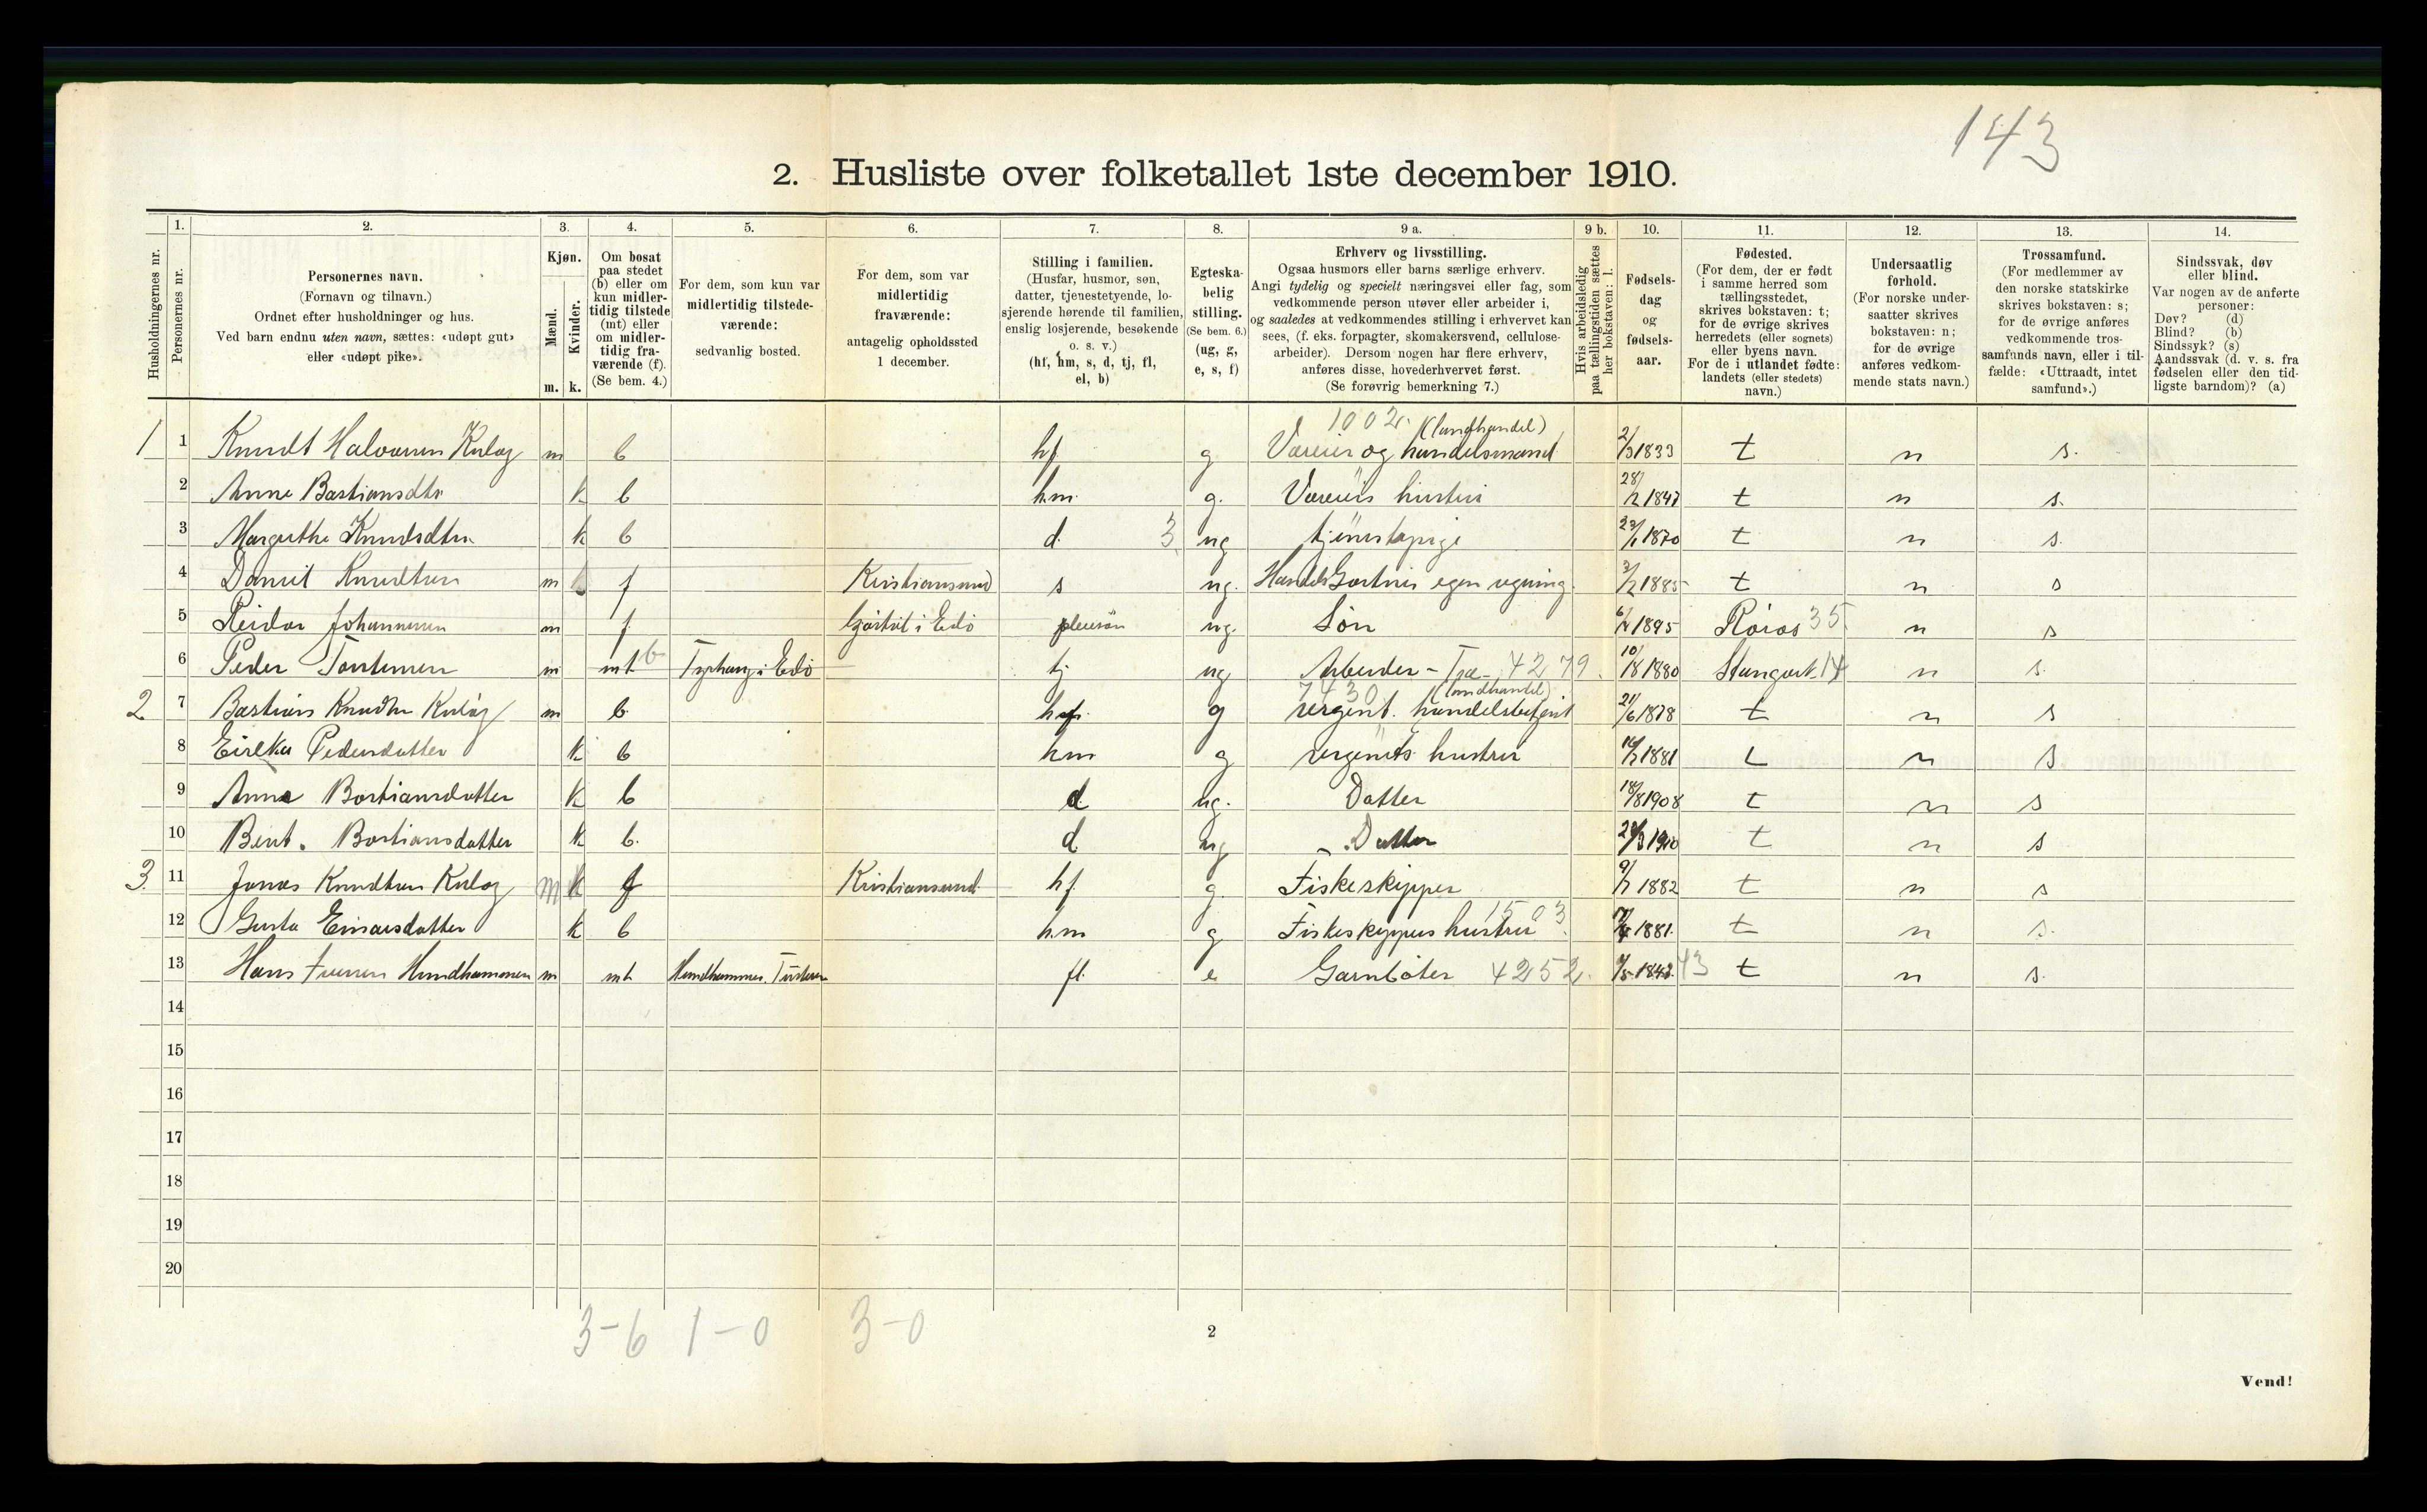 143
2. Husliste over folketallet 1ste december 1910.
Husholdningernes nr.
1. Personernes nr.
2. Personernes navn.
(Fornavn og tilnavn.)
Ordnet efter husholdninger og hus.
Ved barn endnu uten navn, sættes: «udøpt gut»
eller «udøpt pike».
3. Kjøn.
Mænd. m.
Kvinder. k.
4. Om bosat
paa stedet
(b) eller om
kun midler-
tidig tilstede
(mt) eller
om midler-
tidig fra-
værende (f).
(Se bem. 4.)
5. For dem, som kun var
midlertidig tilstede-
værende:
sedvanlig bosted.
6. For dem, som var
midlertidig
fraværende:
antagelig opholdssted
1 december.
7. Stilling i familien.
(Husfar, husmor, søn,
datter, tjenestetyende, lo-
sjerende hørende til familien,
enslig losjerende, besøkende
o. s. v.)
(hf, hm, s, d, tj, fl,
el, b)
8. Egteska-
belig
stilling.
(Se bem. 6.)
(ug, g,
e, s, f)
9 a. Erhverv og livsstilling.
Ogsaa husmors eller barns særlige erhverv.
Angi tydelig og specielt næringsvei eller fag, som
vedkommende person utøver eller arbeider i,
og saaledes at vedkommendes stilling i erhvervet kan
sees, (f. eks. forpagter, skomakersvend, cellulose-
arbeider). Dersom nogen har flere erhverv,
anføres disse, hovederhvervet først.
(Se forøvrig bemerkning 7.)
9 b. Hvis arbeidsledig
paa tællingstiden sættes
her bokstaven: l.
10. Fødsels-
dag
og
fødsels-
aar.
11. Fødested.
(For dem, der er født
i samme herred som
tællingsstedet,
skrives bokstaven: t;
for de øvrige skrives
herredets (eller sognets)
eller byens navn.
For de i utlandet fødte:
landets (eller stedets)
navn.)
12. Undersaatlig
forhold.
(For norske under-
saatter skrives
bokstaven: n;
for de øvrige
anføres vedkom-
mende stats navn.)
13. Trossamfund.
(For medlemmer av
den norske statskirke
skrives bokstaven: s;
for de øvrige anføres
vedkommende tros-
samfunds navn, eller i til-
fælde: «Uttraadt, intet
samfund».)
14. Sindssvak, døv
eller blind.
Var nogen av de anførte
personer:
Døv? (d)
Blind? (b)
Sindssyk? (s)
Aandssvak (d. v. s. fra
fødselen eller den tid-
ligste barndom)? (a)
1002. (landhandel)
1 1 Knudt Halvorsen Kuløy m b hf g Væreier og handelsmand 2/3 1833 t n s.
2 Anne Bastiansdtr k b hm g. Væreiers hustru 28/12 1847 t n s.
3 Margrethe Knudsdtr. k b d. 3 ug tjenestepige 23/1 1870 t n s.
4 Daniel Knudtsen m f Kristiansund s ug. Handels Gartner egen regning. 3/2 1885 t n s
5 Reidar Johannesen m f Edø pleiesøn ug. Søn 1895 Røros 35. n s
6 Peder Torstensen m mt b Edø tj ug Arbeider - Træ- 4279. 10/8 1880 Stangvik 14 n s.
7430 (landhandel)
2 7 Bastian Knudtsen Kuløy m b. hf. g handelsbetjent 21/6 1878 t n s
8 Pedersdatter k b hm g hustru 1881 t n s
9 Anna Bastiansdatter k b d ug. Datter 18/8 1908 t n s
10 Berit. Bastiansdatter k b. d ug Datter 1910 t n s
3. 11 Jonas Knudtsen Kuløy m f Kristiansund hf. g. Fiskeskipper 9/7 1882 t n s
12 Gusta Einarsdatter k b hm g Fiskeskippers hustru 1503. 1881 t n s.
13 Hans Iversen Hundhammeren m mt Hundhammer. Tustern fl. e Garnbøter 4252. 1843 43 t n s.
14
15
16
17
18
19
20
3-6 1-0 3-0
2
Vend!